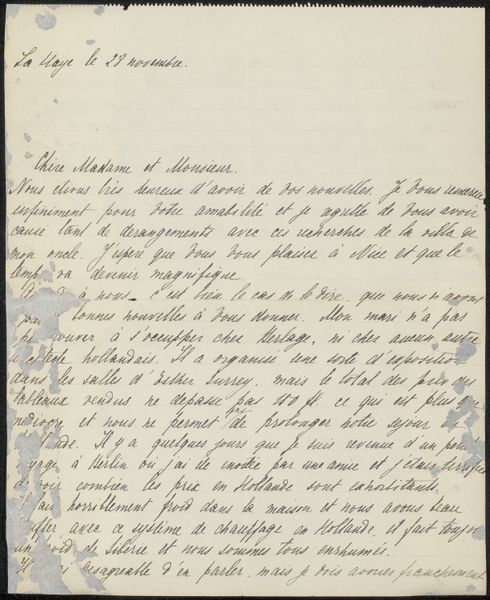 La Haye le 28 novembre.
Chère Madame et Monsieur.
Nous étions très heureux d'avoir de vos nouvelles. Je vous remercie
infiniment pour votre amabilité et je regrette de vous avoir
causé tant de dérangements avec ces recherches de la villa de
mon oncle. J'espère que vous vous plaisez à Nice et que le
temps va devenir magnifique.
à nous - c'est bien le cas de le dire, que nous n'avons
bonnes nouvelles à vous donner. Mon mari n'a pas
trouver à s'occupper chez Berlage, ni chez aucun autre
hollandais. Il a organisé une sorte d'exposition
dans les salles d'Esther Surrey, mais le total des prix des
tableaux vendus ne dépasse pas 150 fl ce qui est plus que
médiocre et nous ne permet pas de prolonger notre séjour en
Il y a quelques jours que je suis revenue d'un petit
à Berlin où j'ai été invitée par une amie et j'étais terrifiée
de voir combien les prix en Hollande sont exhorbitants.
Il fait horriblement froid dans la maison et nous avons beau
chauffer, avec ce système de chauffage en Hollande, il fait toujours
un froid de Sibérie et nous sommes tous enrhumés.
désagréable d'en parler, mais je dois avouer franchement